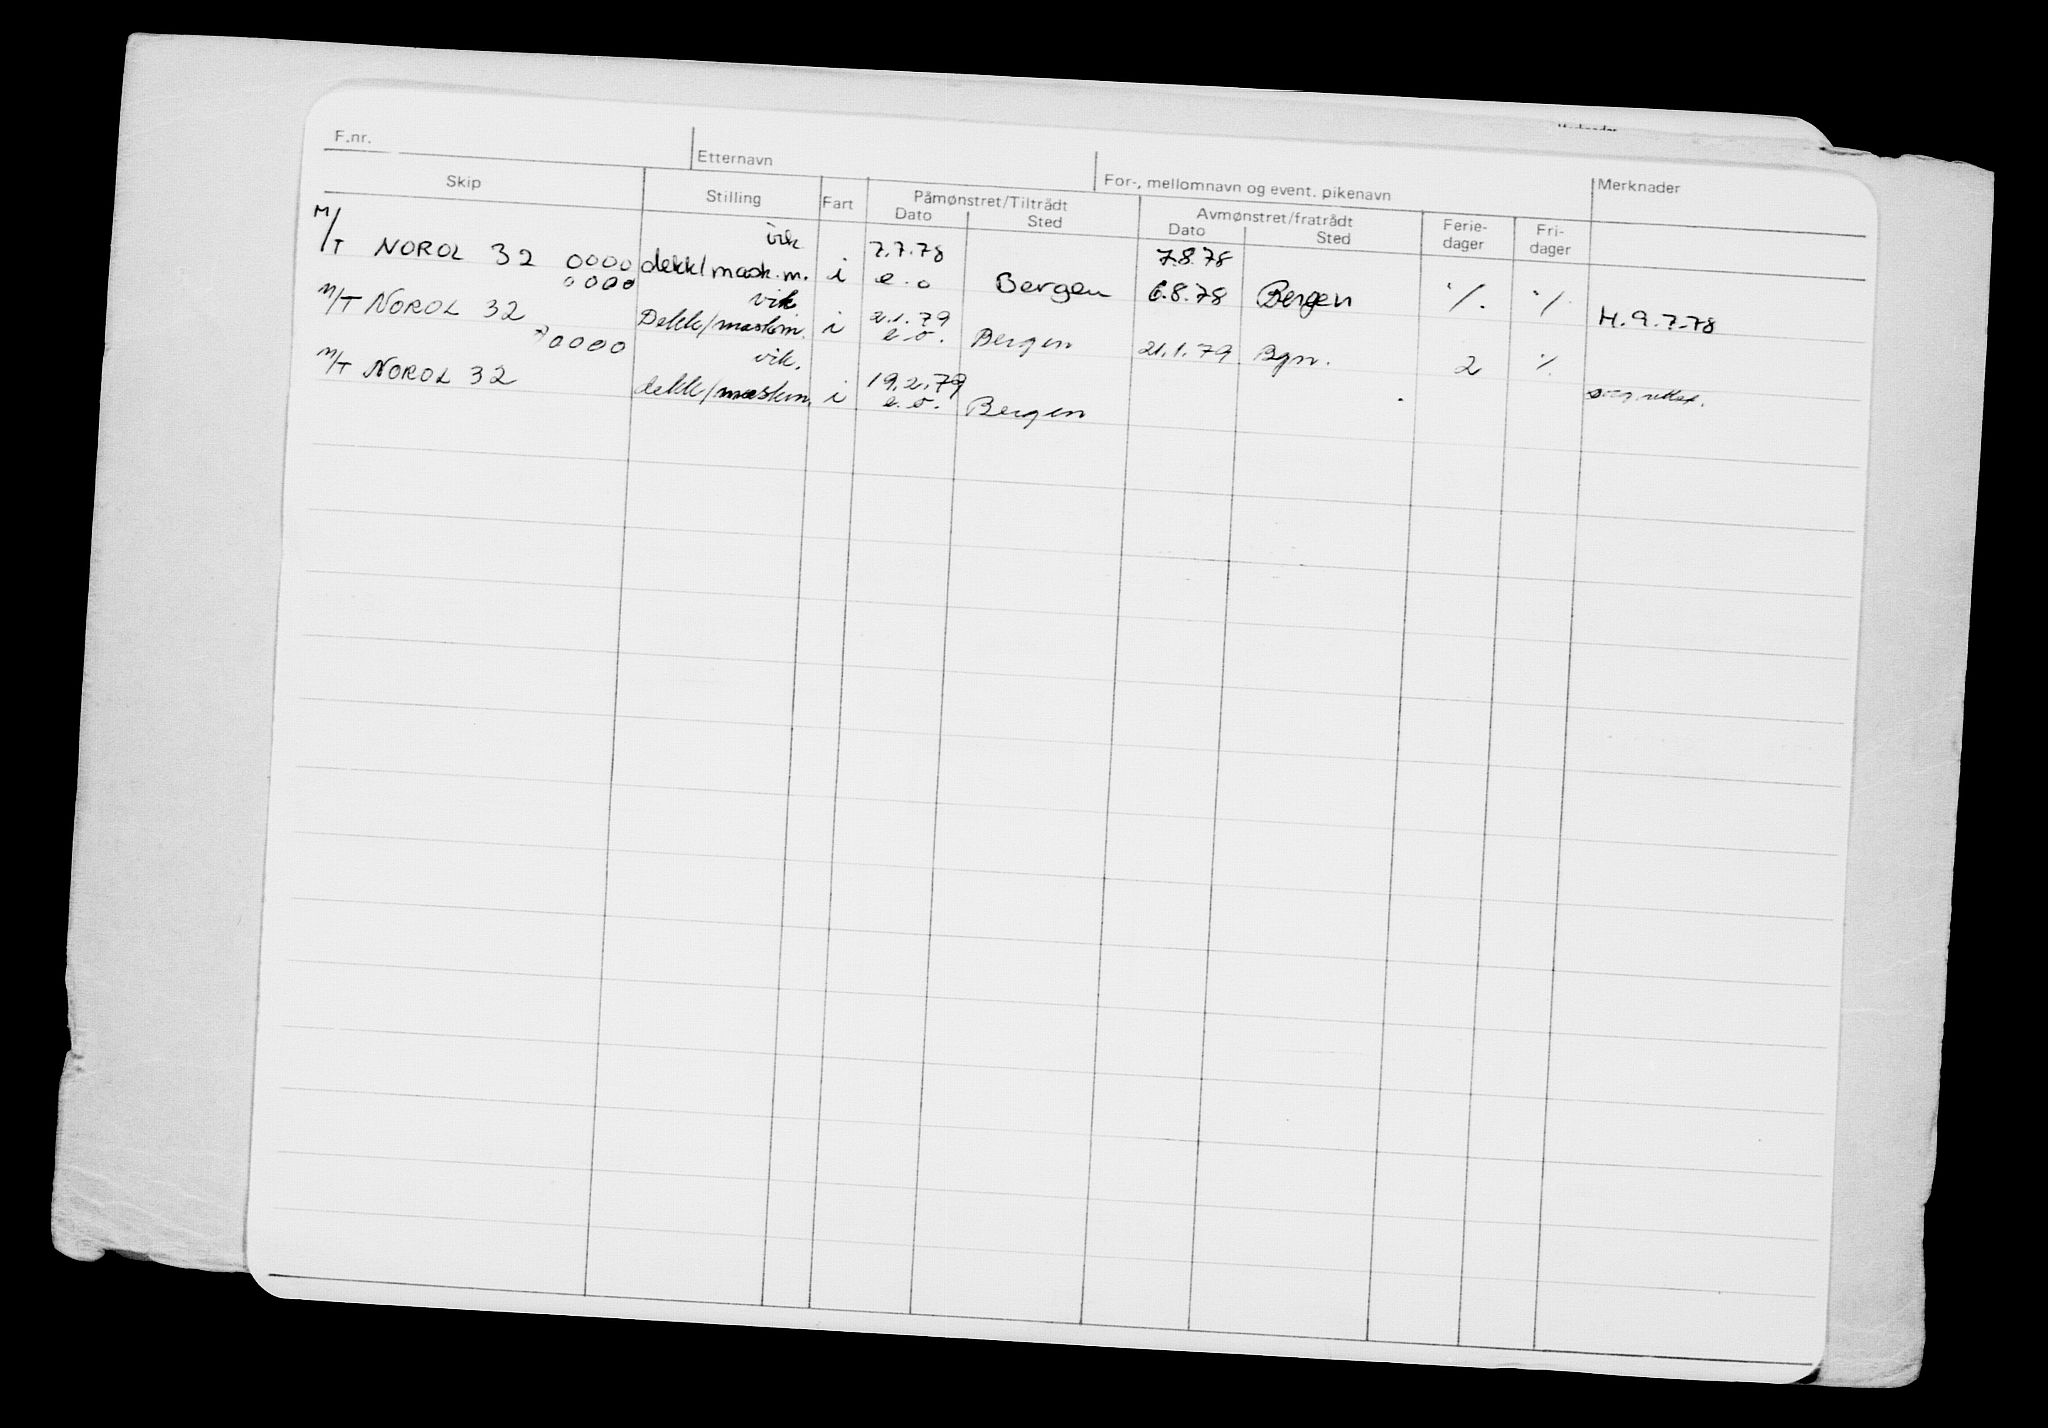 F.nr. Etternavn For-, mellomnavn og event. pikenavn Merknader
Skip Stilling Fart Påmønstret/Tiltrådt Avmønstret/fratrådt Ferie- Fri-
Dato Sted Dato Sted dager dager
vik 7.7.78 7.8.78
M/T NOROL 32 0000 dekk/mask.m. i e.o Bergen 6.8.78 Bergen % % H. 9.7.78
0000 vik 2.1.79
M/T NOROL 32 Dekk/maskin. i e.o. Bergen 21.1.79 Bgn. 2 %
0000 vik. 19.2.79
M/T NOROL 32 dekk/maskin. i e.o. Bergen